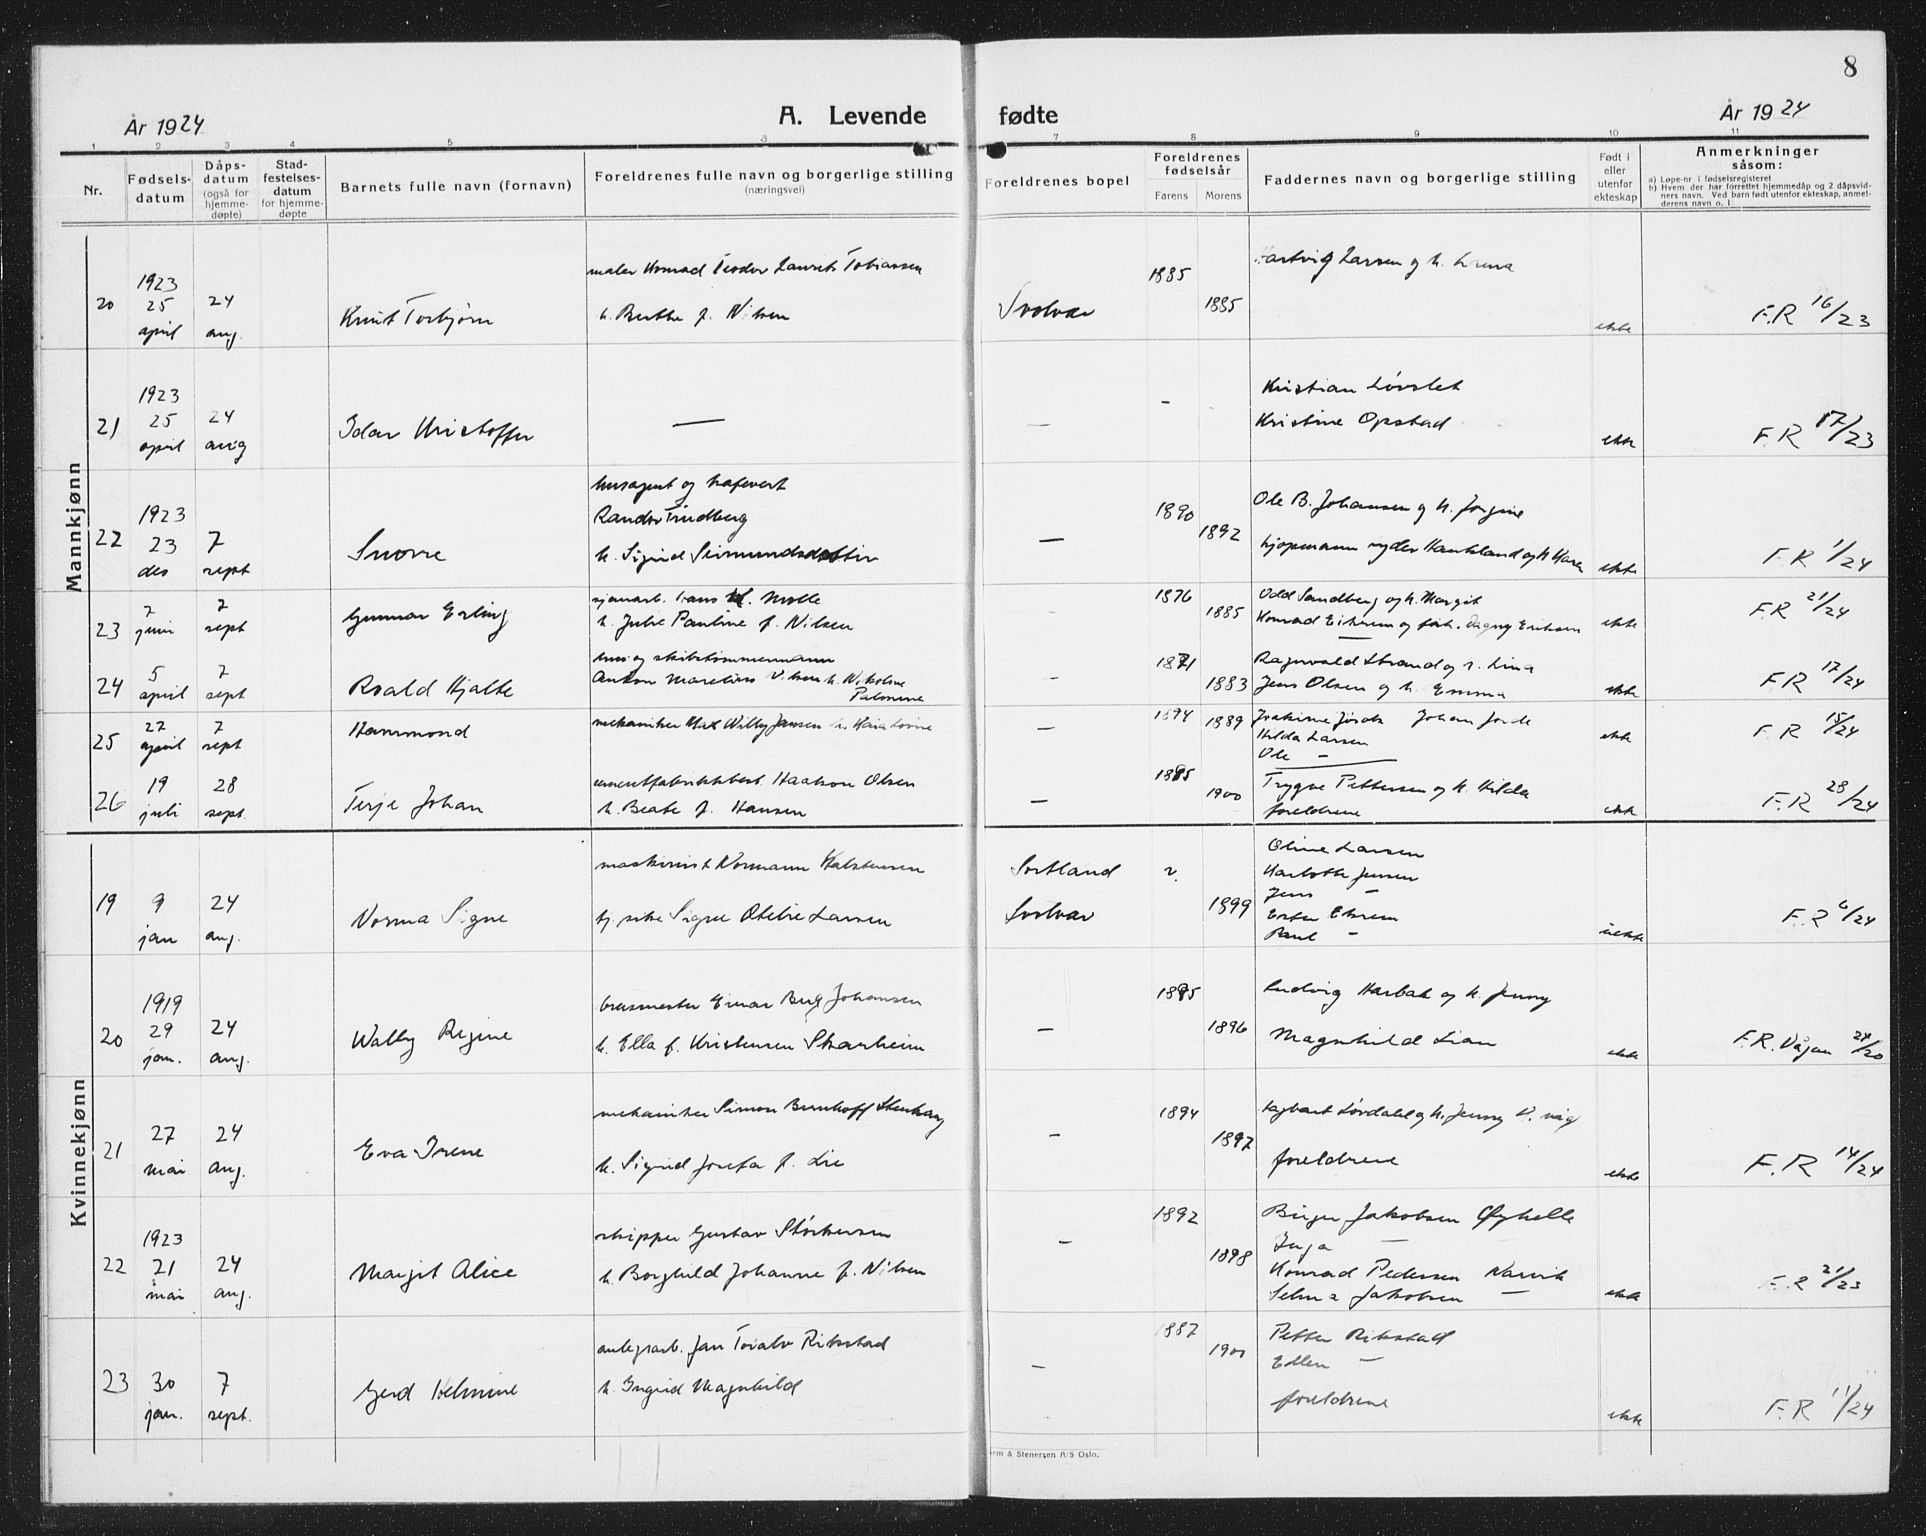 8
År 1924
A. Levende fødte
År 1924
1 2 3 4 5 6 7 8 9 10 11
Nr.
Fødselsdatum
Dåpsdatum (også for hjemmedøpte)
Stadfestelsesdatum for hjemmedøpte
Barnets fulle navn (fornavn)
Foreldrenes fulle navn og borgerlige stilling (næringsvei)
Foreldrenes bopel
Foreldrenes fødselsår
Farens Morens
Faddernes navn og borgerlige stilling
Født i eller utenfor ekteskap
Anmerkninger såsom:
a) Løpe-nr i fødselsregisteret
b) Hvem der har forrettet hjemmedåp og 2 dåpsvidners navn. Ved barn født utenfor ekteskap, anmelderens navn o. l
Mannkjønn
maler Konrad Teodor Laurits Tobiassen
Hartvig Larsen og h.
20 1923 25 april 24 aug. Knut Torbjørn
h. Berthe f. Nilsen Svolvær 1885 1885 ekte F.R 16/23
Kristian Løvslet
21 1923 25 april 24 aug Idar Kristoffer — — -
Kristine Opstad ekte F.R 17/23
husagent og
Randor Trudberg
22 1923 23 des 7 sept Snorre
h. Sigrid — 1890 1892
Ole B. Johansen og h. Jørgine
ekte F.R 1/24
23 7 juni 7 sept Gunnar Erling
sjauarb. Hans Molle
h. Julie Pauline f. Nilsen 1876 1885
Odd Sandberg og h. Margit
Konrad og frk. Dagny Eriksen ekte F.R 21/24
24 5 april 7 sept Roald Hjalte
hus og skibstømmermann
Anton Marelius Nilsen h. Nikoline
— 1871 1883
Ragnvald Strand og h. Lina
Jens Olsen og h. Emma ekte F.R 17/24
25 27 april 7 sept Hammond
mekaniker Max Willy Jensen h.
— 1894 1889
Johan
Hilda Larsen
Ole — ekte F.R 15/24
26 19 juli 28 sept. Terje Johan
Haakon Olsen
h. Beate f. Hansen — 1885 1900
Trygve Pettersen og h. Hilda
foreldrene ekte F.R 28/24
Kvinnekjønn
19 9 jan 24 aug. Norma Signe
maskinist Normann
pike Signe Otelie Larsen
Sortland
Svolvær 1899
Oline Larsen
Harlotte Jensen
Jens —
Ester
Paul — uekte F.R 6/24
20 1919 29 jan. 24 aug. Wally Regine
Einar Berg Johansen
h. Ella f. Kristensen Skarheim — 1895 1896
Ludvig Harbak og h. Jenny
Magnhild Lian ekte F.R. Vågan 24/20
21 27 mai 24 aug. Eva Irene
mekaniker Simon Bernhoff
h. Sigrid Josefa f. Lie — 1894 1897
og h. Jenny
foreldrene ekte F.R 14/24
22 1923 21 mai 24 aug. Margit Alice
skipper Gustav Størkersen
h. Borghild Johanne f. Nilsen — 1892 1898
Birger Jakobsen Øyhelle
Inga —
Konrad Pedersen Narvik
Selma Jakobsen — ekte F.R 21/23
23 30 jan. 7 sept. Gerd Helmine
anlegsarb. Jan Toralv Rikstad
h. Ingrid Magnhild — 1887 1900
Petter Rikstad
Ellen —
foreldrene ekte F.R 11/24
em & Stenersen A/S Oslo.